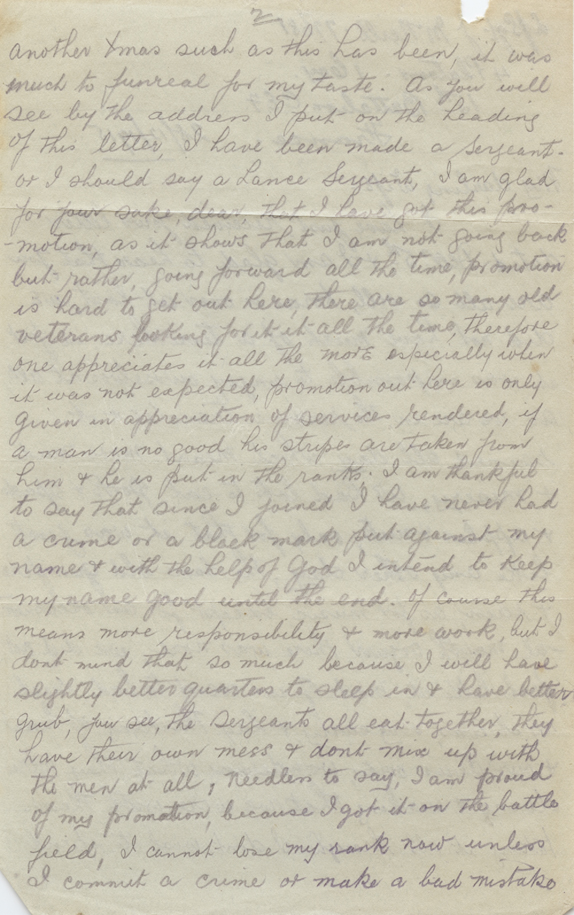 2
another Xmas such as this has been, it was
much to funreal for my taste. As you will
see by the address I put on the heading
of this letter, I have been made a Sergeant-
or I should say a Lance Sergeant, I am glad
for your sake, dear, that I have got this pro-
-motion, as it shows that I am not going back
but rather, going forward all the time, promotion
is hard to get out here, there are so many old
veterans looking for it it all the time, therefore
one appreciates it all the more especially when
it was not expected, promotion out here is only
given in appreciation of services rendered, if
a man is no good his stripes are taken from
him & he is put in the ranks. I am thankful
to say that since I joined I have never had
a crime or a black mark put against my
name & with the help of God I intend to keep
my name good until the end. Of course this
means more responsibility & more work, but I
dont mind that so much because I will have
slightly better quarters to sleep in & have better
grub, you see, the Sergeants all eat together, they
have their own mess & dont mix up with
the men at all, needless to say, I am proud
of my promotion, because I got it on the battle
field, I cannot lose my rank now unless
I commit a crime or make a bad mistake